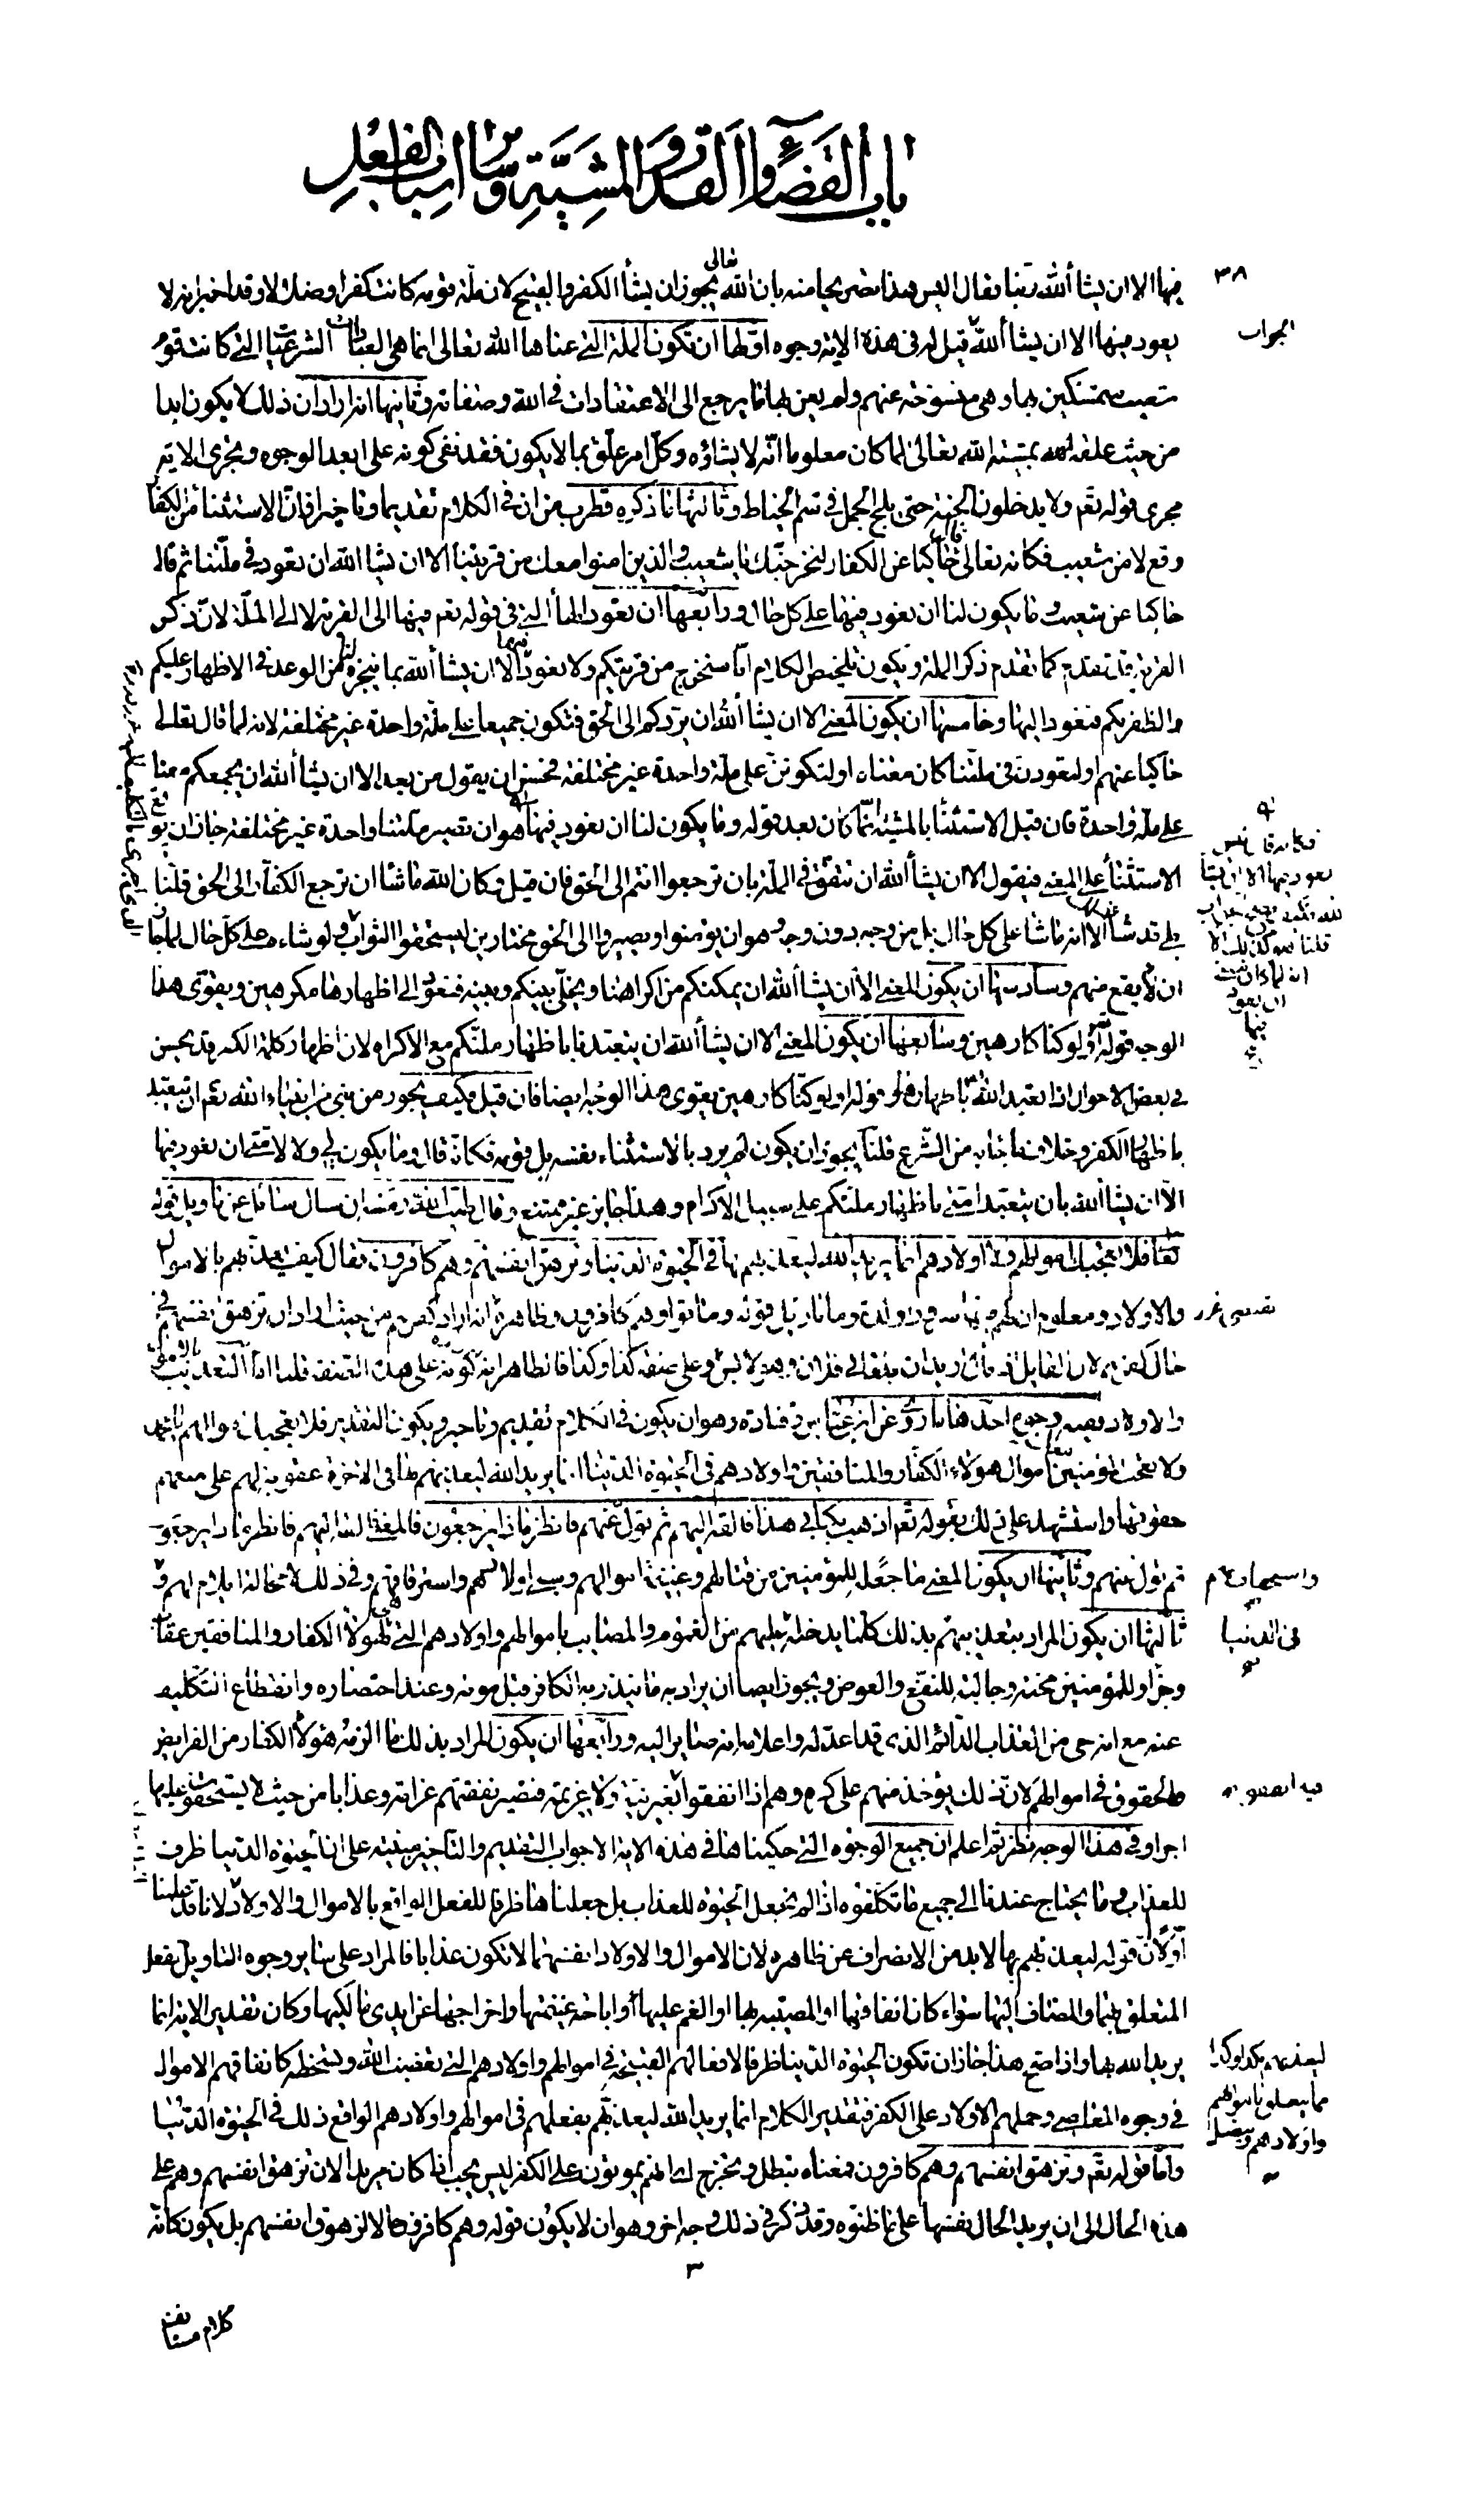 باب القضاء والقدر والمشية وسائر اسباب الفعل
٣٨
فيها الا ان يشأ الله ربنا فقال اليس هذا تصريحا منه بان الله تعالى يجوز ان يشأ الكفر والقبيح لان ملة قومه كانت كفرا وضلالا وقد اخبر انه لا
الجواب
يعود فيها الا ان يشأ الله قيل له في هذه الاية وجوه اولها ان تكون الملة التي عناها الله تعالى انما هي العبادات الشرعيات التي كانت قوم
شعيب متمسكين بها وهي منسوخة عنهم ولم يعن بها ما يرجع الى الاعتقادات في الله وصفاته وثانيها انه اراد ان ذلك لا يكون ابدا
من حيث علقه بمشية الله تعالى لما كان معلوما انه لا يشاؤه وكل امر علق بما لا يكون فقد نفى كونه على ابعد الوجوه وتجرى الاية
مجرى قوله تعم ولا يدخلون الجنة حتى يلج الجمل في سم الخياط وثالثها ما ذكره قطرب من ان في الكلام تقديما وتاخيرا فان الاستثناء من الكفار
وقع لا من شعيب فكانه تعالى قال حاكيا عن الكفار لنخرجنك يا شعيب والذين امنوا معك من قريتنا الا ان يشا الله ان تعود في ملتنا ثم قال
حاكيا عن شعيب وما يكون لنا ان نعود فيها على كل حال ورابعها ان تعود الهاء التي في قوله تعم فيها الى القرية لا الى الملة لان ذكر
القرية قد تقدم كما تقدم ذكر الملة ويكون تلخيص الكلام انا سنخرج من قريتكم ولا نعود فيها الا ان يشأ الله بما ينجزه لنا من الوعد في الاظهار عليكم
والظفر بكم فنعود اليها وخامسها ان يكون المعنى الا ان يشأ الله ان يردكم الى الحق فنكون جميعا على ملة واحدة غير مختلفة لانه لما قال تعالى
حاكيا عنهم او لتعودن في ملتنا كان معناه او لنكونن على ملة واحدة غير مختلفة فحسن ان يقول من بعد الا ان يشأ الله ان يجمعكم معنا
على ملة واحدة فان قيل الاستثناء بالمشية انما كان بعد قوله وما يكون لنا ان نعود فيها هو ان تصير ملتنا واحدة غير مختلفة جاز ان يوقع
الاستثناء على المعنى فيقول الا ان يشأ الله ان نتفق في الملة بان ترجعوا انتم الى الحق فان قيل وكان الله ما شأ ان ترجع الكفار الى الحق قلنا
بلى قد شأ الا انه ما شأ على كل حال بل من وجه دون وجه وهو ان يؤمنوا ويصيروا الى الحق مختارين ليستحقوا الثواب ولو شاء على كل حال لما جاز
ان لا يقع منهم وسادسها ان يكون المعنى الا ان يشأ الله ان يمكنكم من اكراهنا ويخلى بينكم وبينه فنعود الى اظهارها مكرهين ويقوى هذا
الوجه قوله او لو كنا كارهين وسابعها ان يكون المعنى الا ان يشأ الله ان يتعبدنا باظهار ملتكم مع الاكراه لان اظهار كلمة الكفر قد يحسن
في بعض الاحوال اذا تعبد الله باظهاره وقوله او لو كنا كارهين يقوى هذا الوجه ايضا فان قيل فكيف يجوز من نبي من انبياء الله تعم ان يتعبد
باظهار الكفر وخلاف ما جاء به من الشرع قلنا يجوز ان يكون لم يرد بالاستثناء نفسه بل قومه فكانه قال وما يكون لي ولا لامتى ان نعود فيها
الا ان يشأ الله بان يتعبد امتى باظهار ملتكم على سبيل الاكراه وهذا جايز غير ممتنع وقال طيب الله رمسه ان سال سائل عن تاويل قوله
تعا فلا تعجبك اموالهم ولا اولادهم انما يريد الله ليعذبهم بها في الحيوة الدنيا وتزهق انفسهم وهم كافرون فقال كيف يعذبهم بالاموال
والاولاد ومعلوم ان لهم فيها سرورا ولذة وما تاويل قوله وماتوا وهم كافرون وظاهره انه اراد كفرهم من حيث اراد ان تزهق انفسهم في
حال كفرهم لان القايل اذا قال اريد ان يلقاني فلان وهو لابس وعلى صفة كذا وكذا فالظاهر انه اراد كونه على هذه الصفة قلنا اما التعذيب بالاموال
والاولاد ففيه وجوه احدها ما روى عن ابن عباس وقتادة وهو ان يكون في الكلام تقديم وتاخير ويكون التقدير فلا تعجبك يا محمد
ولا تعجب المؤمنين معك اموال هؤلاء الكفار والمنافقين ولا اولادهم في الحيوة الدنيا انما يريد الله ليعذبهم بها في الاخرة عقوبة لهم على منعهم
حقوقها واستشهد على ذلك بقوله تعم اذهب بكتابي هذا فالقه اليهم ثم تول عنهم فانظر ماذا يرجعون فالمعنى فالقه اليهم فانظر ماذا يرجعون
ثم تول عنهم وثانيها ان يكون المعنى ما جعله للمؤمنين من قتالهم وغنيمة اموالهم وسبي اولادهم واسترقاقهم وفي ذلك لا محالة ايلام لهم و
ثالثها ان يكون المراد بتعذيبهم بذلك كلما يدخله عليهم من الغموم والمصايب باموالهم واولادهم التي هي لهؤلاء الكفار والمنافقين عقاب
وجزاء وللمؤمنين محنة وجالبة للنفع والعوض ويجوز ايضا ان يراد به ما ينذر به الكافر قبل موته وعند احتضاره وانقطاع التكليف
عنه مع انه حي من العذاب الدائم الذي قد اعد له واعلامه انه صاير اليه ورابعها ان يكون المراد بذلك ما الزمه هؤلاء الكفار من الفرايض
والحقوق في اموالهم لان ذلك يؤخذ منهم على كره وهم اذا انفقوا بغير نية ولا عزيمة فتصير نفقتهم غرامة وعذابا من حيث لا يستحقون عليها
اجرا وفي هذا الوجه نظر واعلم ان جميع الوجوه التي حكيناها في هذه الاية الا جواب التقديم والتاخير مبنية على ان الحيوة الدنيا ظرف
للعذاب وما يحتاج عندنا الى جميع ما تكلفوه اذا لم نجعل الحيوة للعذاب بل جعلناها ظرفا للفعل الواقع بالاموال والاولاد لانا قد علمنا
اولا ان قوله ليعذبهم بها لابد من الانصراف عن ظاهره لان الاموال والاولاد انفسهما لا تكون عذابا فالمراد على ساير وجوه التاويل بفعل
المتعلق بها والمضاف اليها سواء كان انفاقها او المصيبة بها او الغم عليها او اباحة غنيمتها واخراجها عن ايدي مالكيها وكان تقدير الاية انما
يريد الله بها واذا صح هذا جاز ان تكون الحيوة الدنيا ظرفا لافعالهم القبيحة في اموالهم واولادهم التي تغضب الله وتسخطه كانفاقهم الاموال
في وجوه المعاصي وحملهم الاولاد على الكفر فتقدير الكلام انما يريد الله ليعذبهم بفعلهم في اموالهم واولادهم الواقع ذلك في الحيوة الدنيا
واما قوله تعم وتزهق انفسهم وهم كافرون فمعناه تبطل وتخرج اى انهم يموتون على الكفر ليس يجب اذا كان مريدا لان تزهق انفسهم وهم على
هذه الحال ان يريد الحال نفسها على ما ظنوه وقد ذكر في ذلك وجه اخر وهو ان لا يكون قوله وهم كافرون حالا لزهوق انفسهم بل يكون كانه
٣
كلام مستانف
في الدنيا
ليعذبهم بكذا وكذا
مما يتعلق باموالهم
واولادهم ويتصل